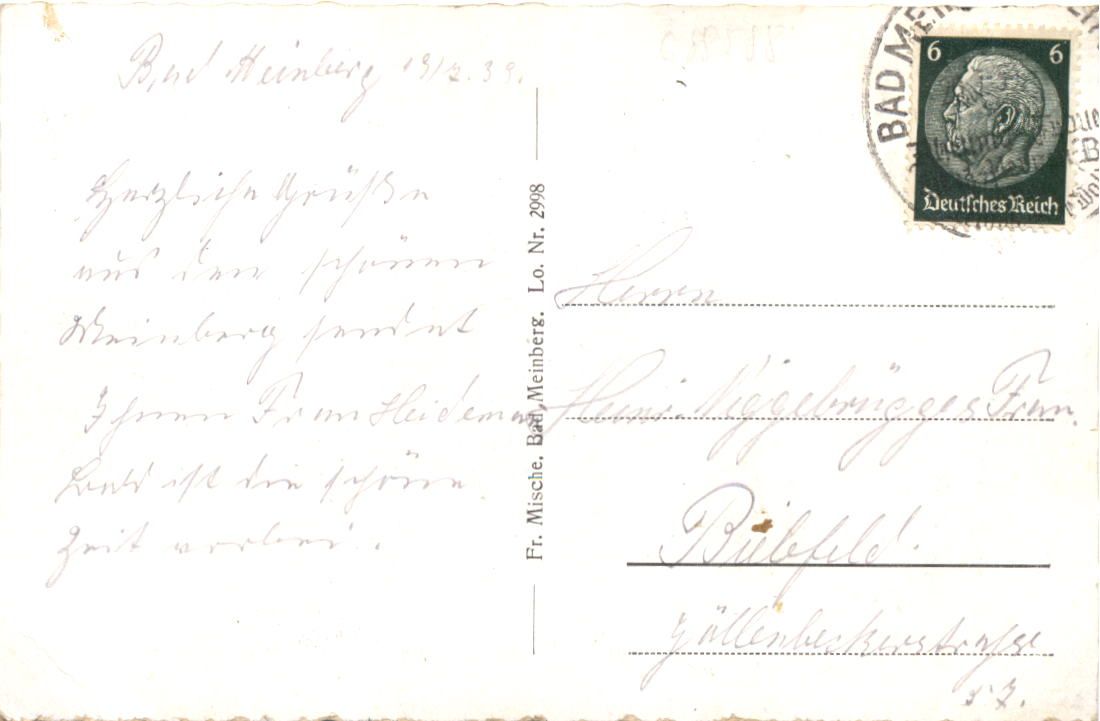 Bad Meinberg 19/7.39.
Herzliche Grüße
aus den schönen
Meinberg sendet
Ihnen Frau Heideman
Bald ist die schöne
Zeit vorbei.
Fr. Mische. Bad Meinberg. Lo. Nr. 2998
BAD MEIN
6 6
Deutsches Reich
Herrn
Heinr. Niggebrügges Frau.
Bielefeld.
Jöllenbeckerstraße
57.